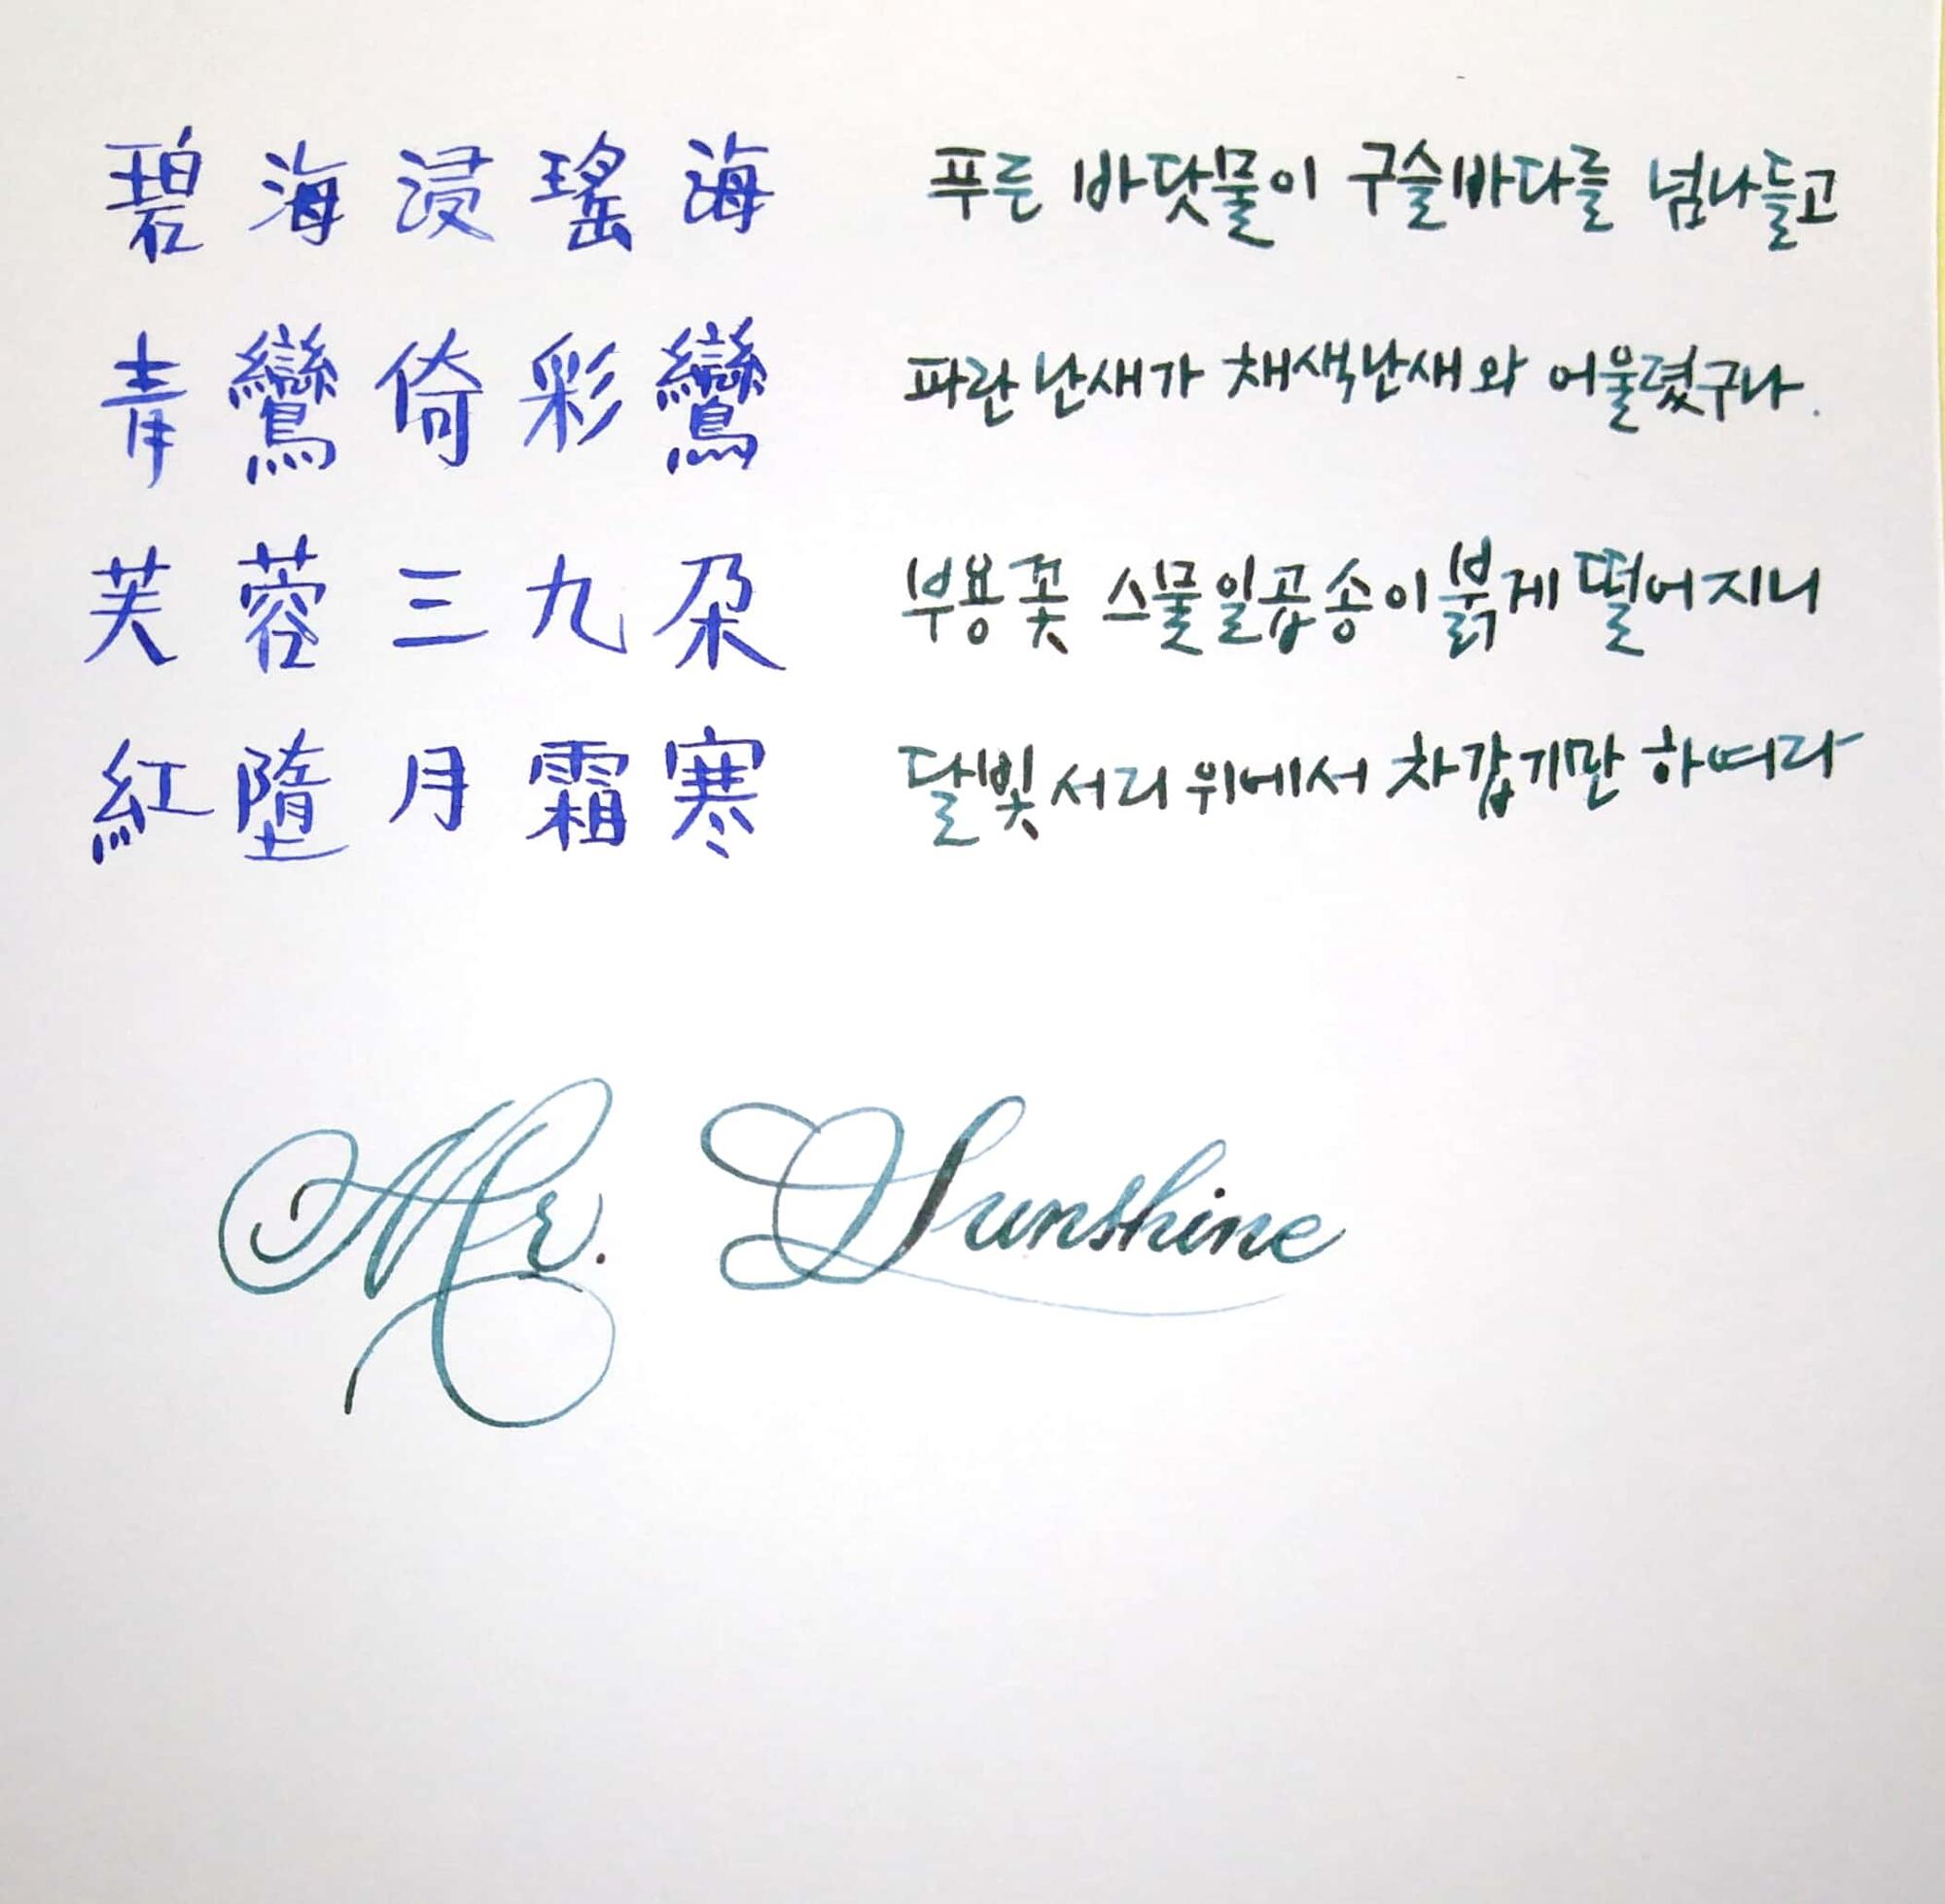 碧海浸瑤海 푸른 바닷물이 구슬바다를 넘나들고
青鸞倚彩鸞 파란 난새가 채색난새와 어울렸구나.
芙蓉三九朶 부용꽃 스물일곱송이 붉게 떨어지니
紅墮月霜寒 달빛 서리 위에서 차갑기만 하여라
Mr. Sunshine